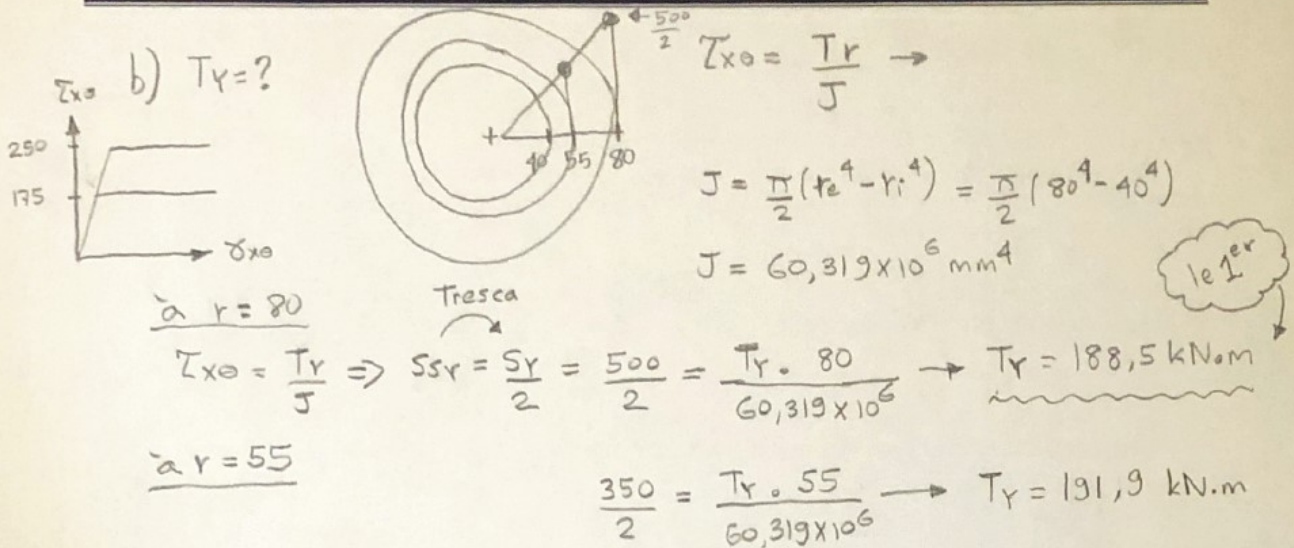 b) Ty = ?
τxθ
250
175
γxθ
+
40 55 80
← 500/2
τxθ = Tr/J →
J = π/2 (re⁴ - ri⁴) = π/2 (80⁴ - 40⁴)
J = 60,319×10⁶ mm⁴
le 1er
à r = 80
Tresca
τxθ = Tr/J => Ssy = Sy/2 = 500/2 = Ty . 80 / 60,319×10⁶ → Ty = 188,5 kN.m
à r = 55
350/2 = Ty . 55 / 60,319×10⁶ → Ty = 191,9 kN.m